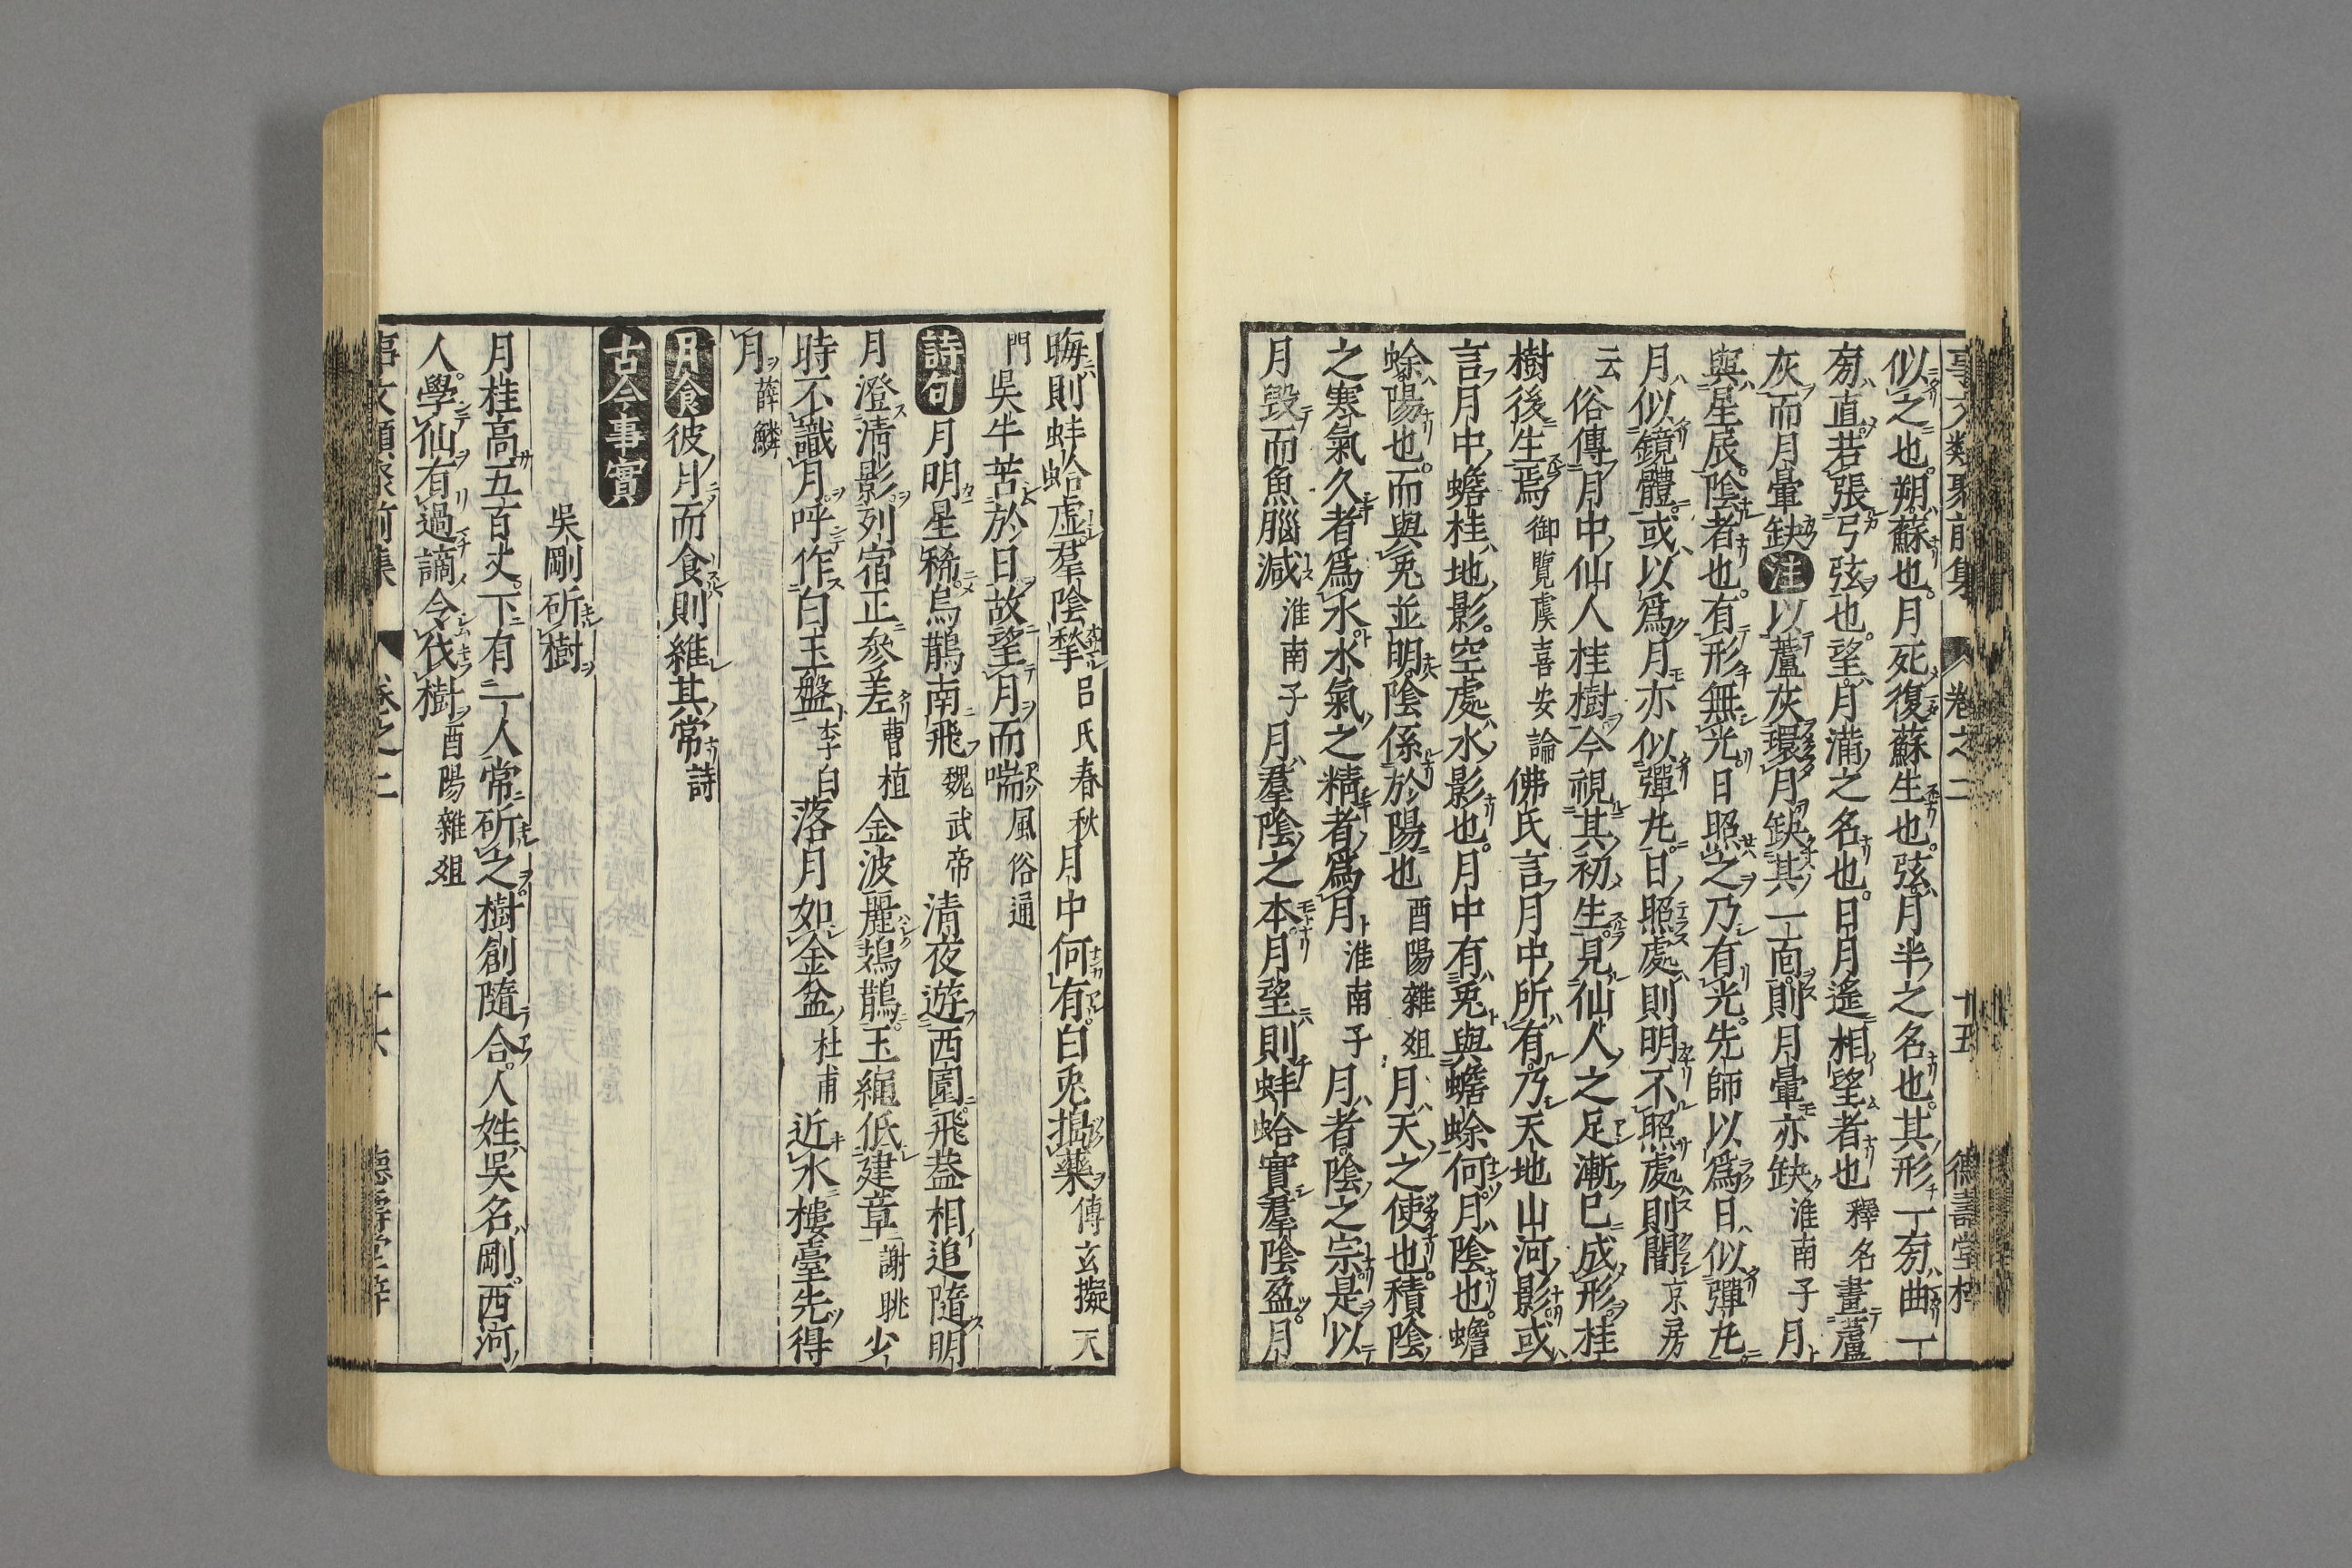 事文類聚前集 卷之二 十五 德壽堂梓
似之也朔蘇也月死復蘇生也弦月半之名也其形一旁曲一
旁直若張弓弦也望月滿之名也日月遙相望者也釋名畫蘆
灰而月暈缺注以蘆灰環月缺其一面則月暈亦缺淮南子月
與星辰陰者也有形無光日照之乃有光先師以爲日似彈丸
月似鏡體或以爲月亦似彈丸日照處則明不照處則闇京房
云俗傳月中仙人桂樹今視其初生見仙人之足漸已成形桂
樹後生焉御覽虞喜安論佛氏言月中所有乃天地山河影或
言月中蟾桂地影空處水影也月中有兎與蟾蜍何月陰也蟾
蜍陽也而與兎並明陰係於陽也酉陽雜爼月天之使也積陰
之寒氣久者爲水水氣之精者爲月淮南子月者陰之宗是以
月毀而魚腦減淮南子月羣陰之本月望則蚌蛤實羣陰盈月
晦則蚌蛤虛羣陰揫呂氏春秋月中何有白兎搗藥傅玄擬天
門吳牛苦於日故望月而喘風俗通
詩句月明星稀烏鵲南飛魏武帝清夜遊西園飛葢相追隨明
月澄清影列宿正參差曹植金波麗鳷鵲玉繩低建章謝眺少
時不識月呼作白玉盤李白落月如金盆杜甫近水樓臺先得
月薛鱗
月食彼月而食則維其常詩
古今事實
吳剛斫樹
月桂高五百丈下有一人常斫之樹創隨合人姓吳名剛西河
人學仙有過謫令伐樹酉陽雜爼
事文類聚前集 卷之二 十六 德壽堂梓